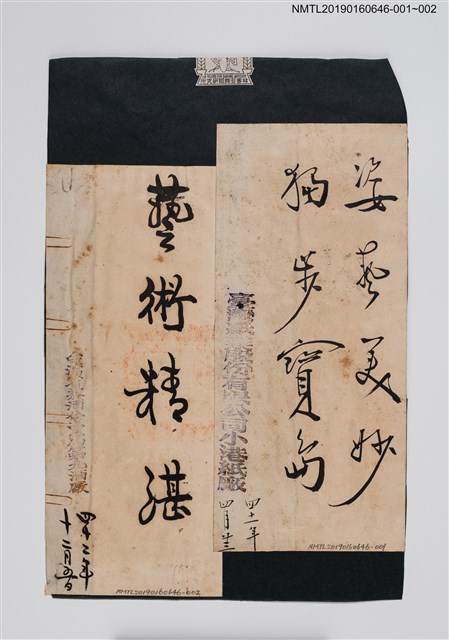 NMTL20190160646-001~002
姿藝美妙
獨步寶島
臺灣紙業股份有限公司小港紙廠
四十一年
四月廿三
NMTL20190160646-001
藝術精湛
四十三年
十二月五日
NMTL20190160646-002